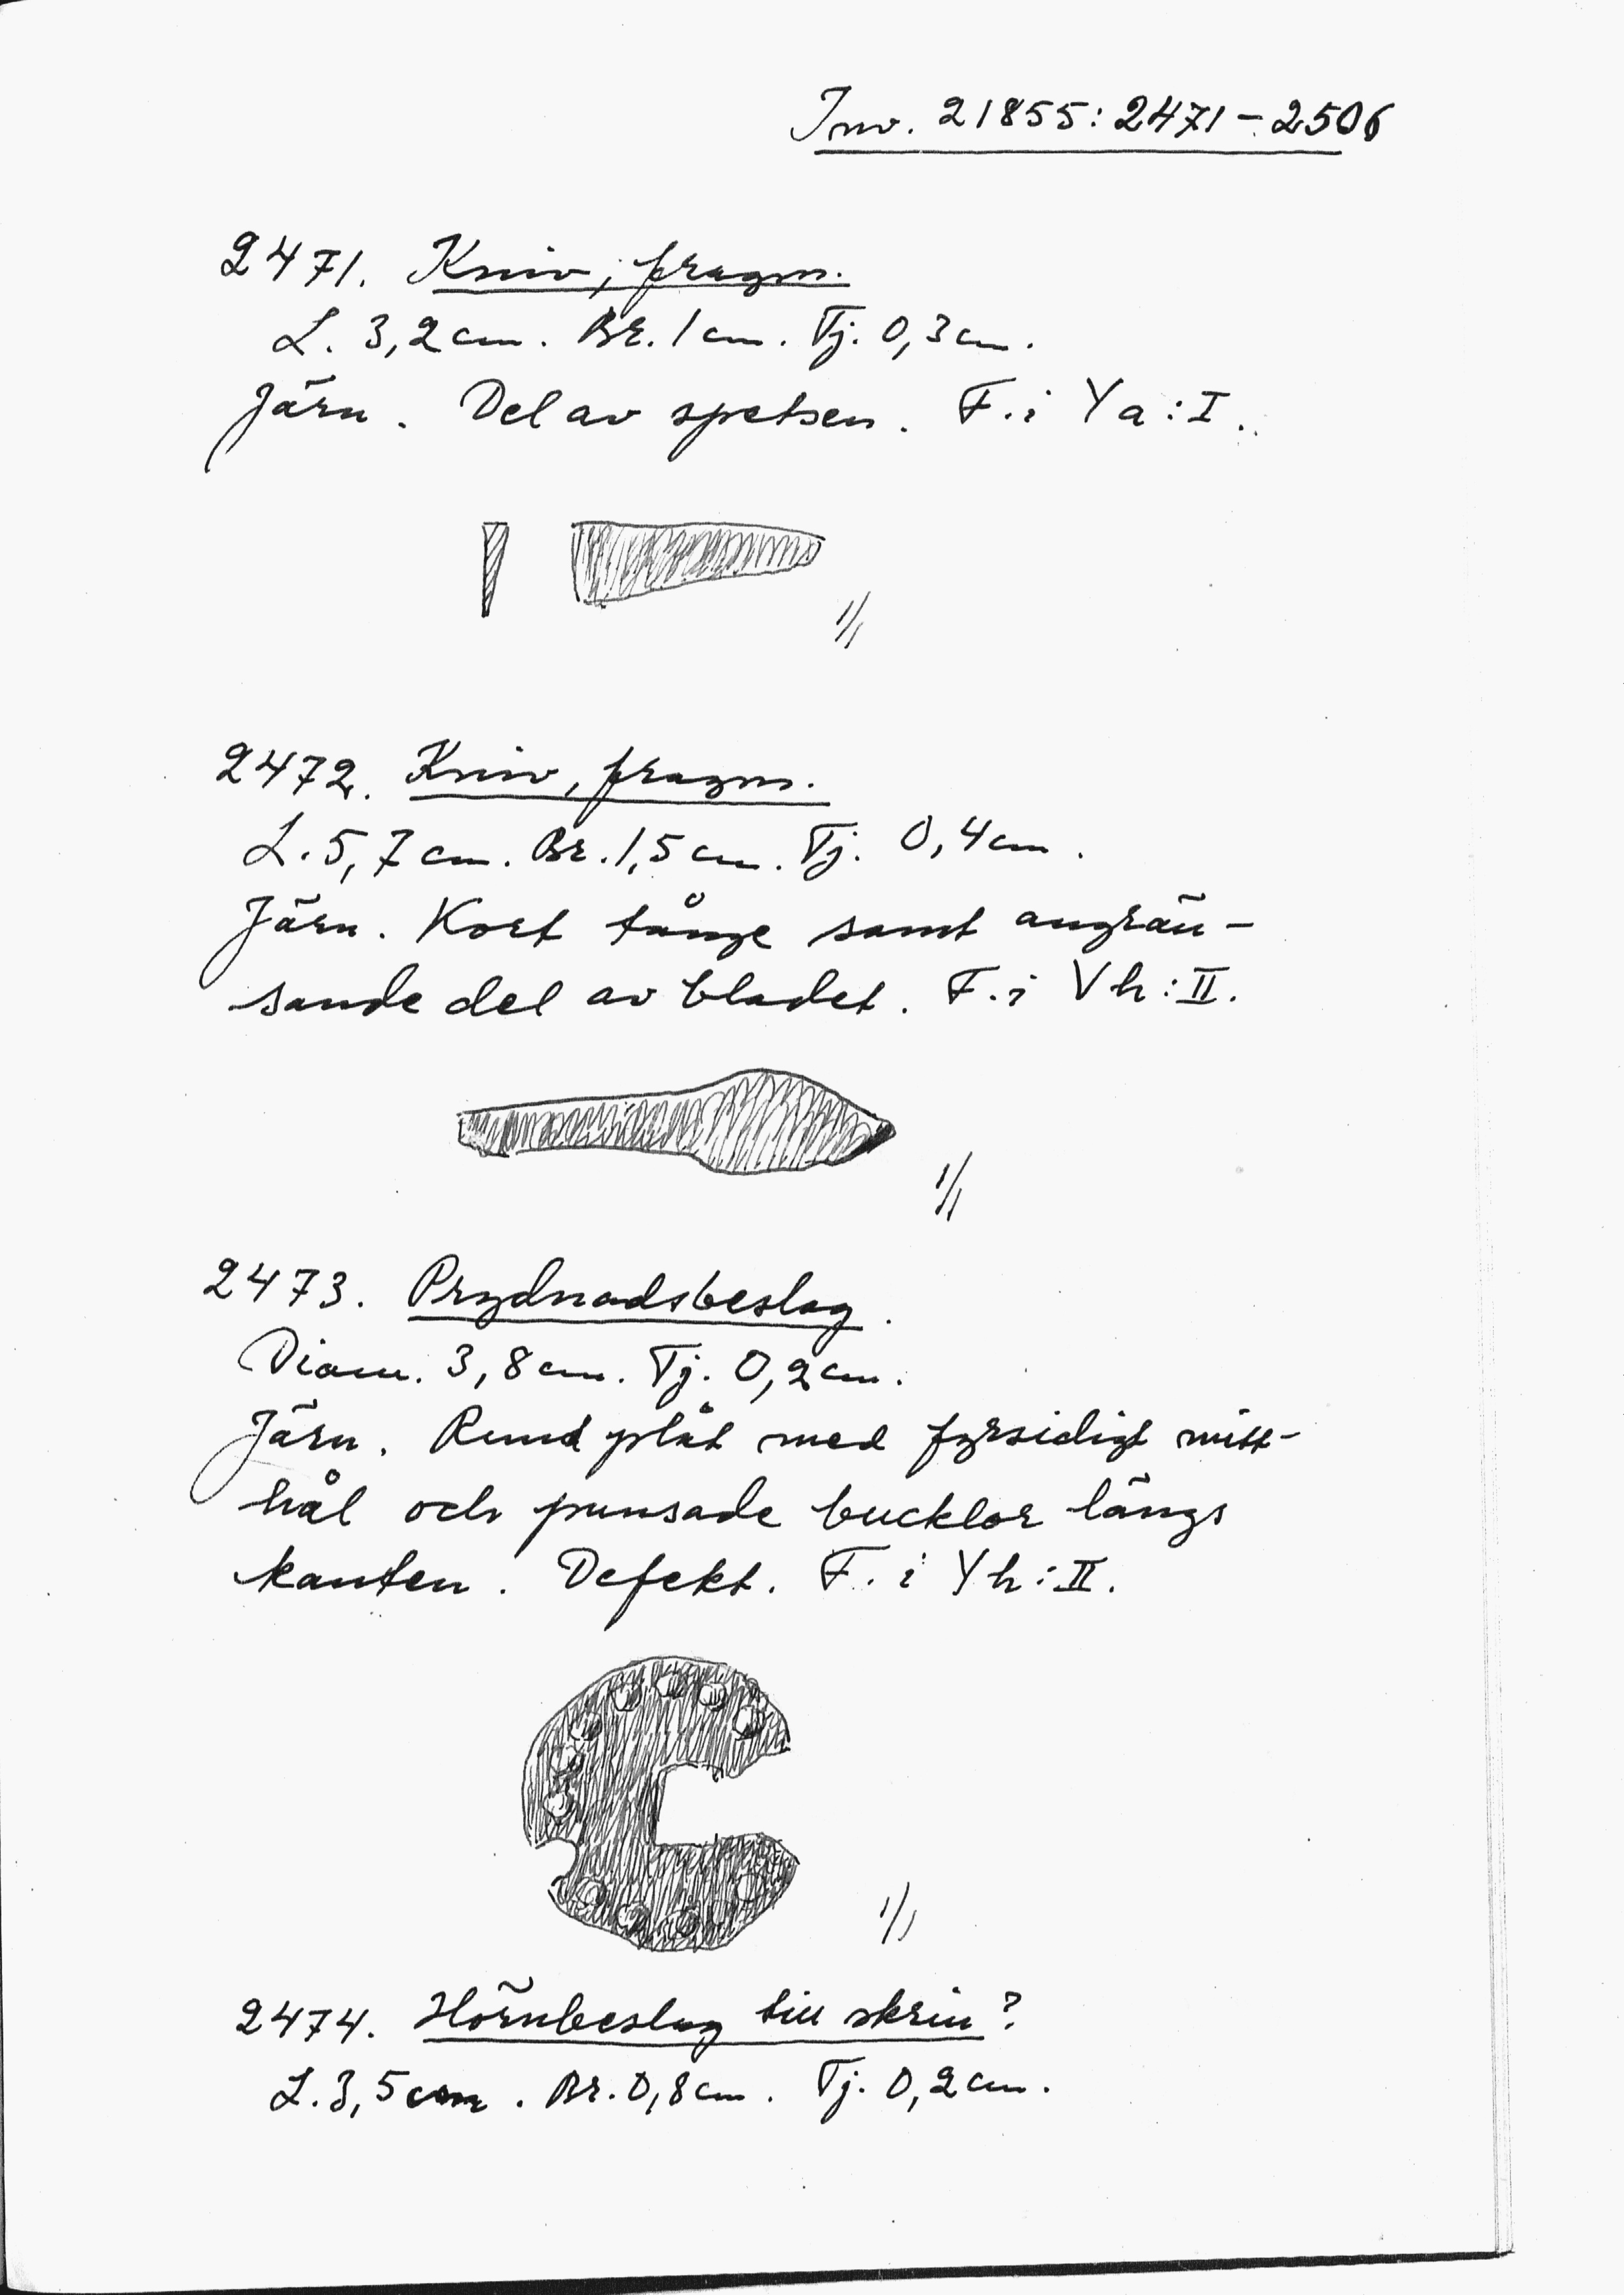 Inv. 21855:2471-2506
2471. Kniv, fragm.
L. 3,2 cm. Br. 1 cm. Tj. 0,3 cm.
Järn. Del av spetsen. F. i Ya:I.
1/1
2472. Kniv, fragm.
L. 5,7 cm. Br. 1,5 cm. Tj. 0,4 cm.
Järn. Kort tånge samt angrän-
sande del av bladet. F. i Vh:II.
1/1
2473. Prydnadsbeslag.
Diam. 3,8 cm. Tj. 0,2 cm.
Järn. Rund plåt med fyrsidigt mitt-
hål och punsade bucklor längs
kanten. Defekt. F. i Yh:II.
1/1
2474. Hörnbeslag till skrin?
L. 3,5 cm. Br. 0,8 cm. Tj. 0,2 cm.